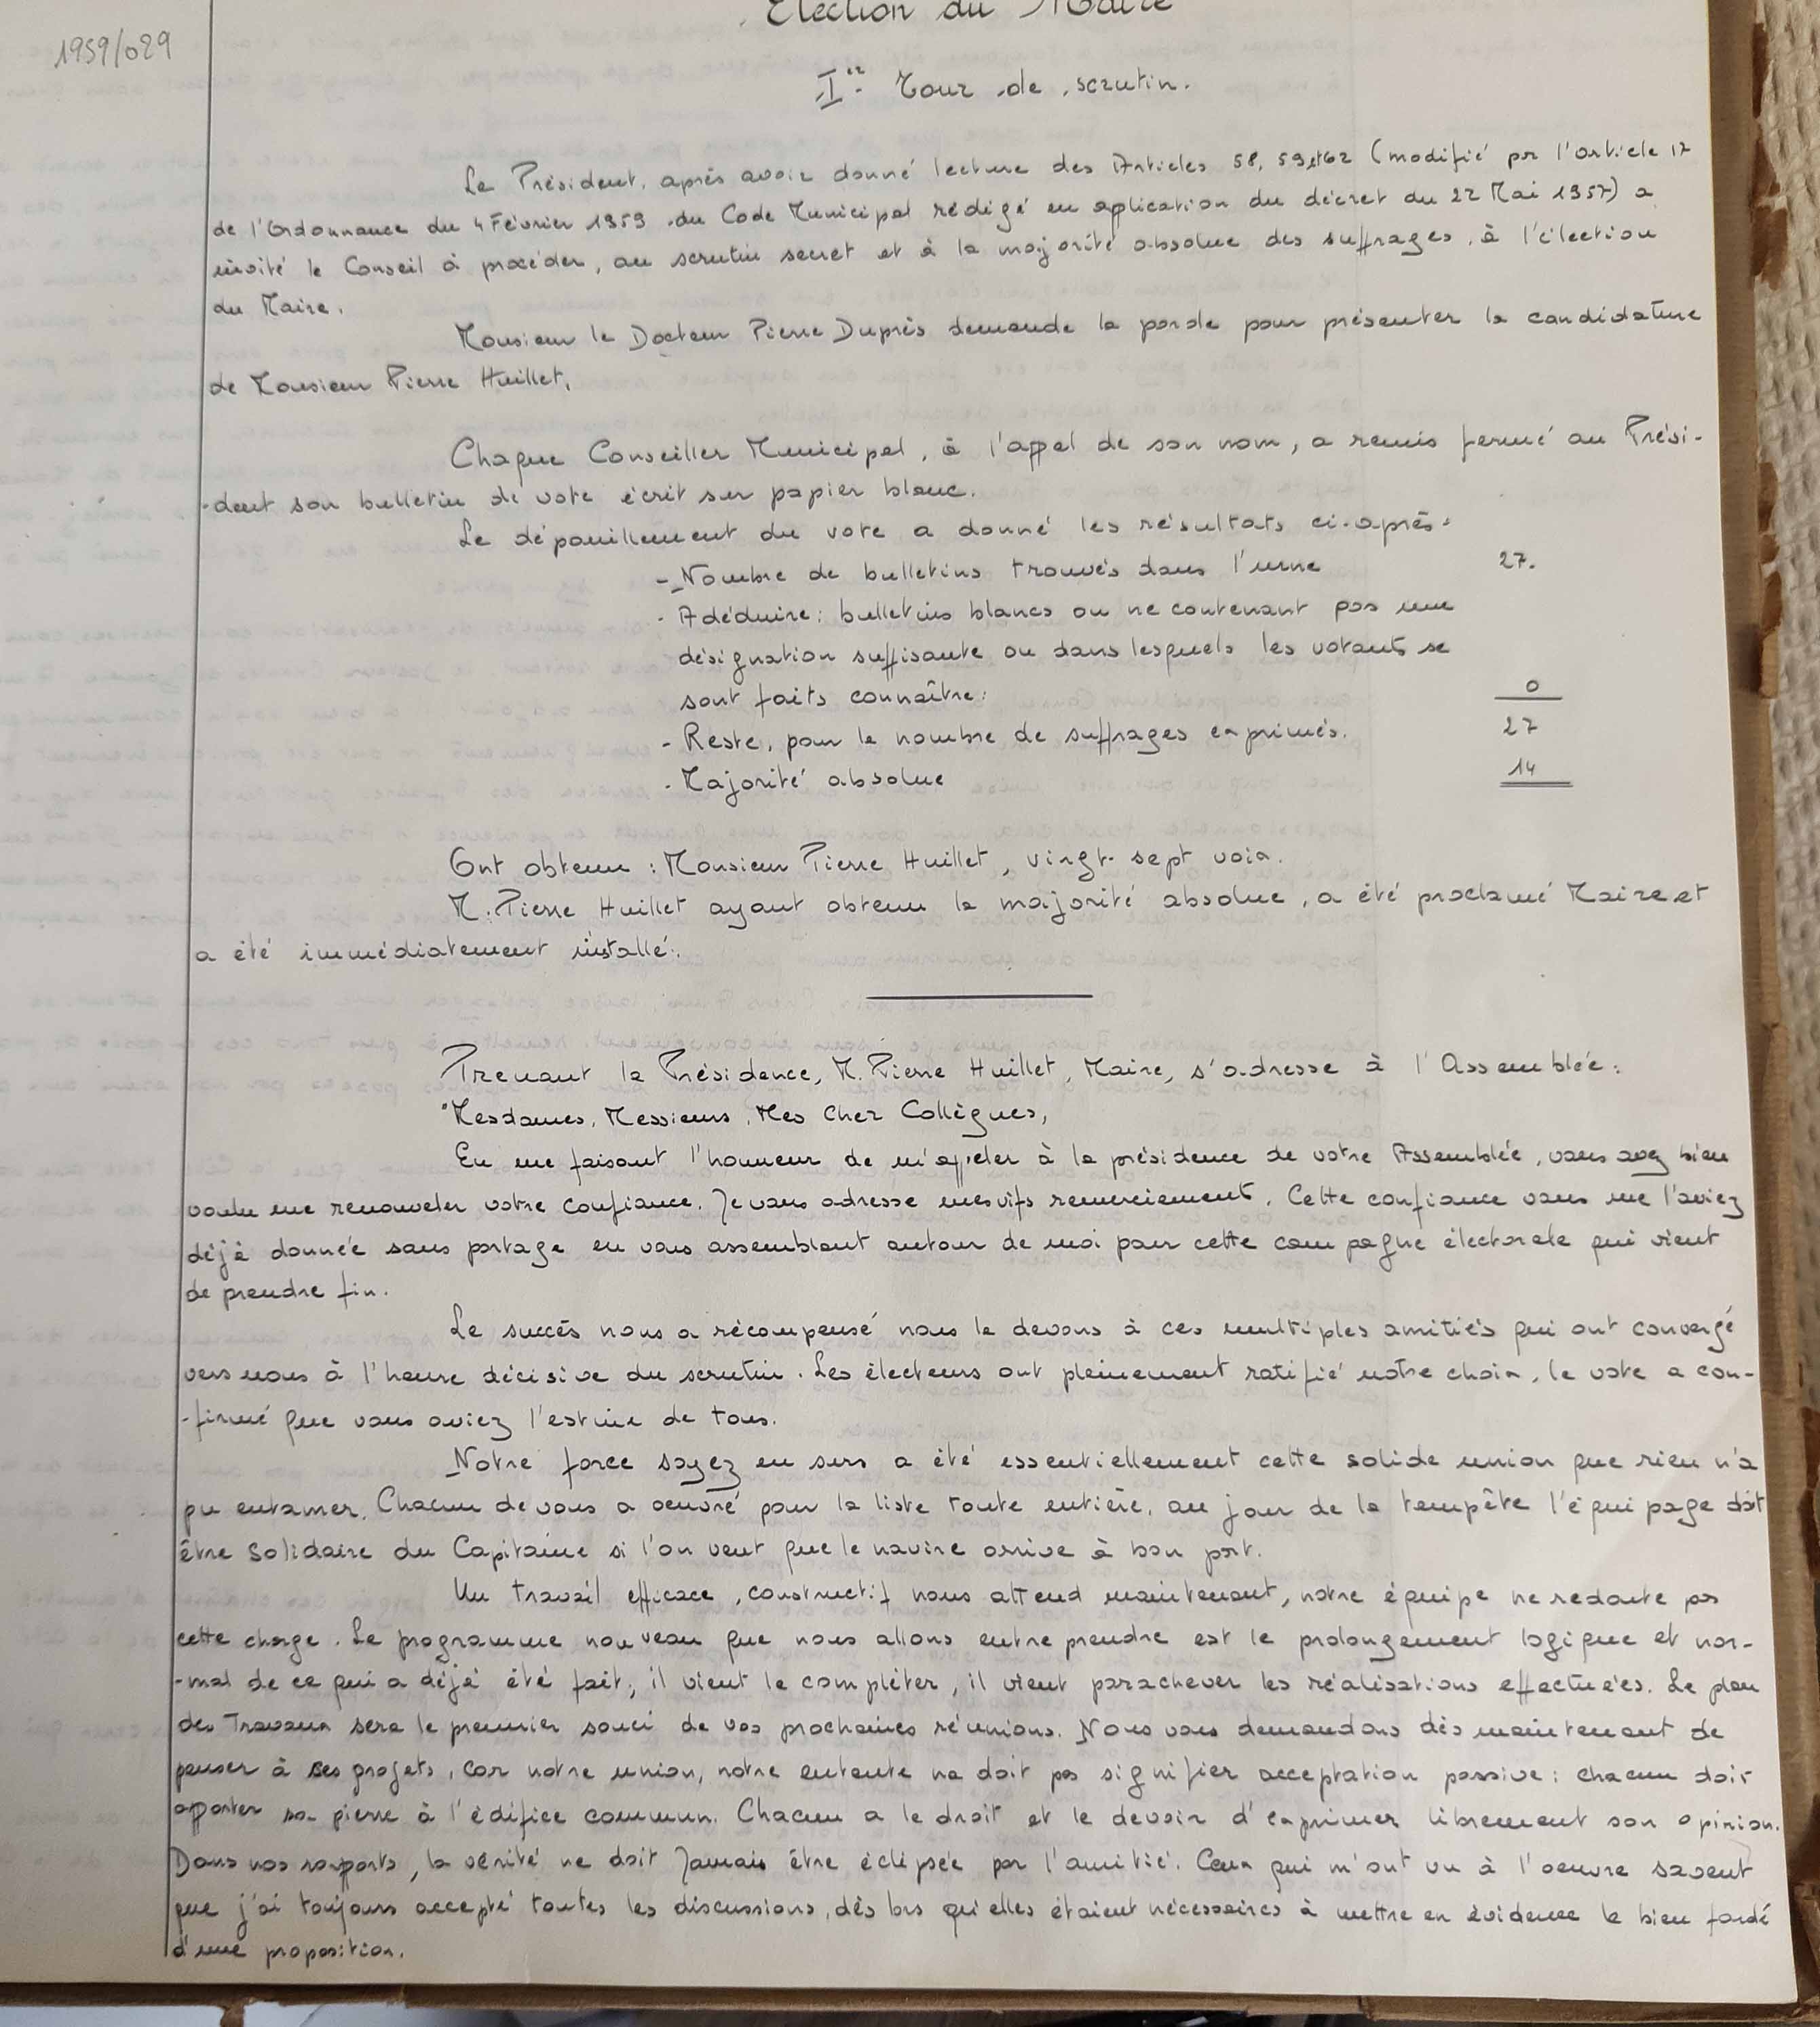 Election du Maire
1959/029
Ier Tour de scrutin.
Le Président, après avoir donné lecture des Articles 58, 59 et 62 (modifié pr l'article 17
de l'Ordonnance du 4 Février 1959 du Code Municipal rédigé en application du décret du 22 Mai 1957) a
invité le Conseil à procéder, au scrutin secret et à la majorité absolue des suffrages, à l'élection
du Maire.
Monsieur le Docteur Pierre Duprès demande la parole pour présenter la candidature
de Monsieur Pierre Huillet,
Chaque Conseiller Municipal, à l'appel de son nom, a remis fermé au Prési-
-dent son bulletin de vote écrit sur papier blanc.
Le dépouillement du vote a donné les résultats ci-après.
- Nombre de bulletins trouvés dans l'urne 27.
- A déduire : bulletins blancs ou ne contenant pas une
désignation suffisante ou dans lesquels les votants se
sont faits connaître : 0
- Reste, pour le nombre de suffrages exprimés. 27
- Majorité absolue 14
Ont obtenu : Monsieur Pierre Huillet, vingt-sept voix.
M. Pierre Huillet ayant obtenu la majorité absolue, a été proclamé Maire et
a été immédiatement installé.
Prenant la Présidence, M. Pierre Huillet, Maire, s'adresse à l'Assemblée :
"Mesdames, Messieurs, Mes Cher Collègues,
En me faisant l'honneur de m'appeler à la présidence de votre Assemblée, vous avez bien
voulu me renouveler votre confiance. Je vous adresse mes vifs remerciement. Cette confiance vous me l'aviez
déjà donnée sans partage en vous assemblant autour de moi pour cette campagne électorale qui vient
de prendre fin.
Le succès nous a récompensé nous le devons à ces multiples amitiés qui ont convergé
vers nous à l'heure décisive du scrutin. Les électeurs ont pleinement ratifié notre choix, le vote a con-
-firmé que vous aviez l'estime de tous.
Notre force soyez en surs a été essentiellement cette solide union que rien n'a
pu entamer. Chacun de vous a oeuvré pour la liste toute entière, au jour de la tempête l'équipage doit
être solidaire du Capitaine si l'on veut que le navire arrive à bon port.
Un travail efficace, constructif nous attend maintenant, notre équipe ne redoute pas
cette charge. Le programme nouveau que nous allons entreprendre est le prolongement logique et nor-
-mal de ce qui a déjà été fait, il vient le compléter, il vient parachever les réalisations effectuées. Le plan
des Travaux sera le premier souci de vos prochaines réunions. Nous vous demandons dès maintenant de
penser à ses projets, car notre union, notre entente ne doit pas signifier acceptation passive : chacun doit
apporter sa pierre à l'édifice commun. Chacun a le droit et le devoir d'exprimer librement son opinion.
Dans nos rapports, la vérité ne doit Jamais être éclipsée par l'amitié. Ceux qui m'ont vu à l'oeuvre savent
que j'ai toujours accepté toutes les discussions, dès lors qu'elles étaient nécessaires à mettre en évidence le bien fondé
d'une proposition.